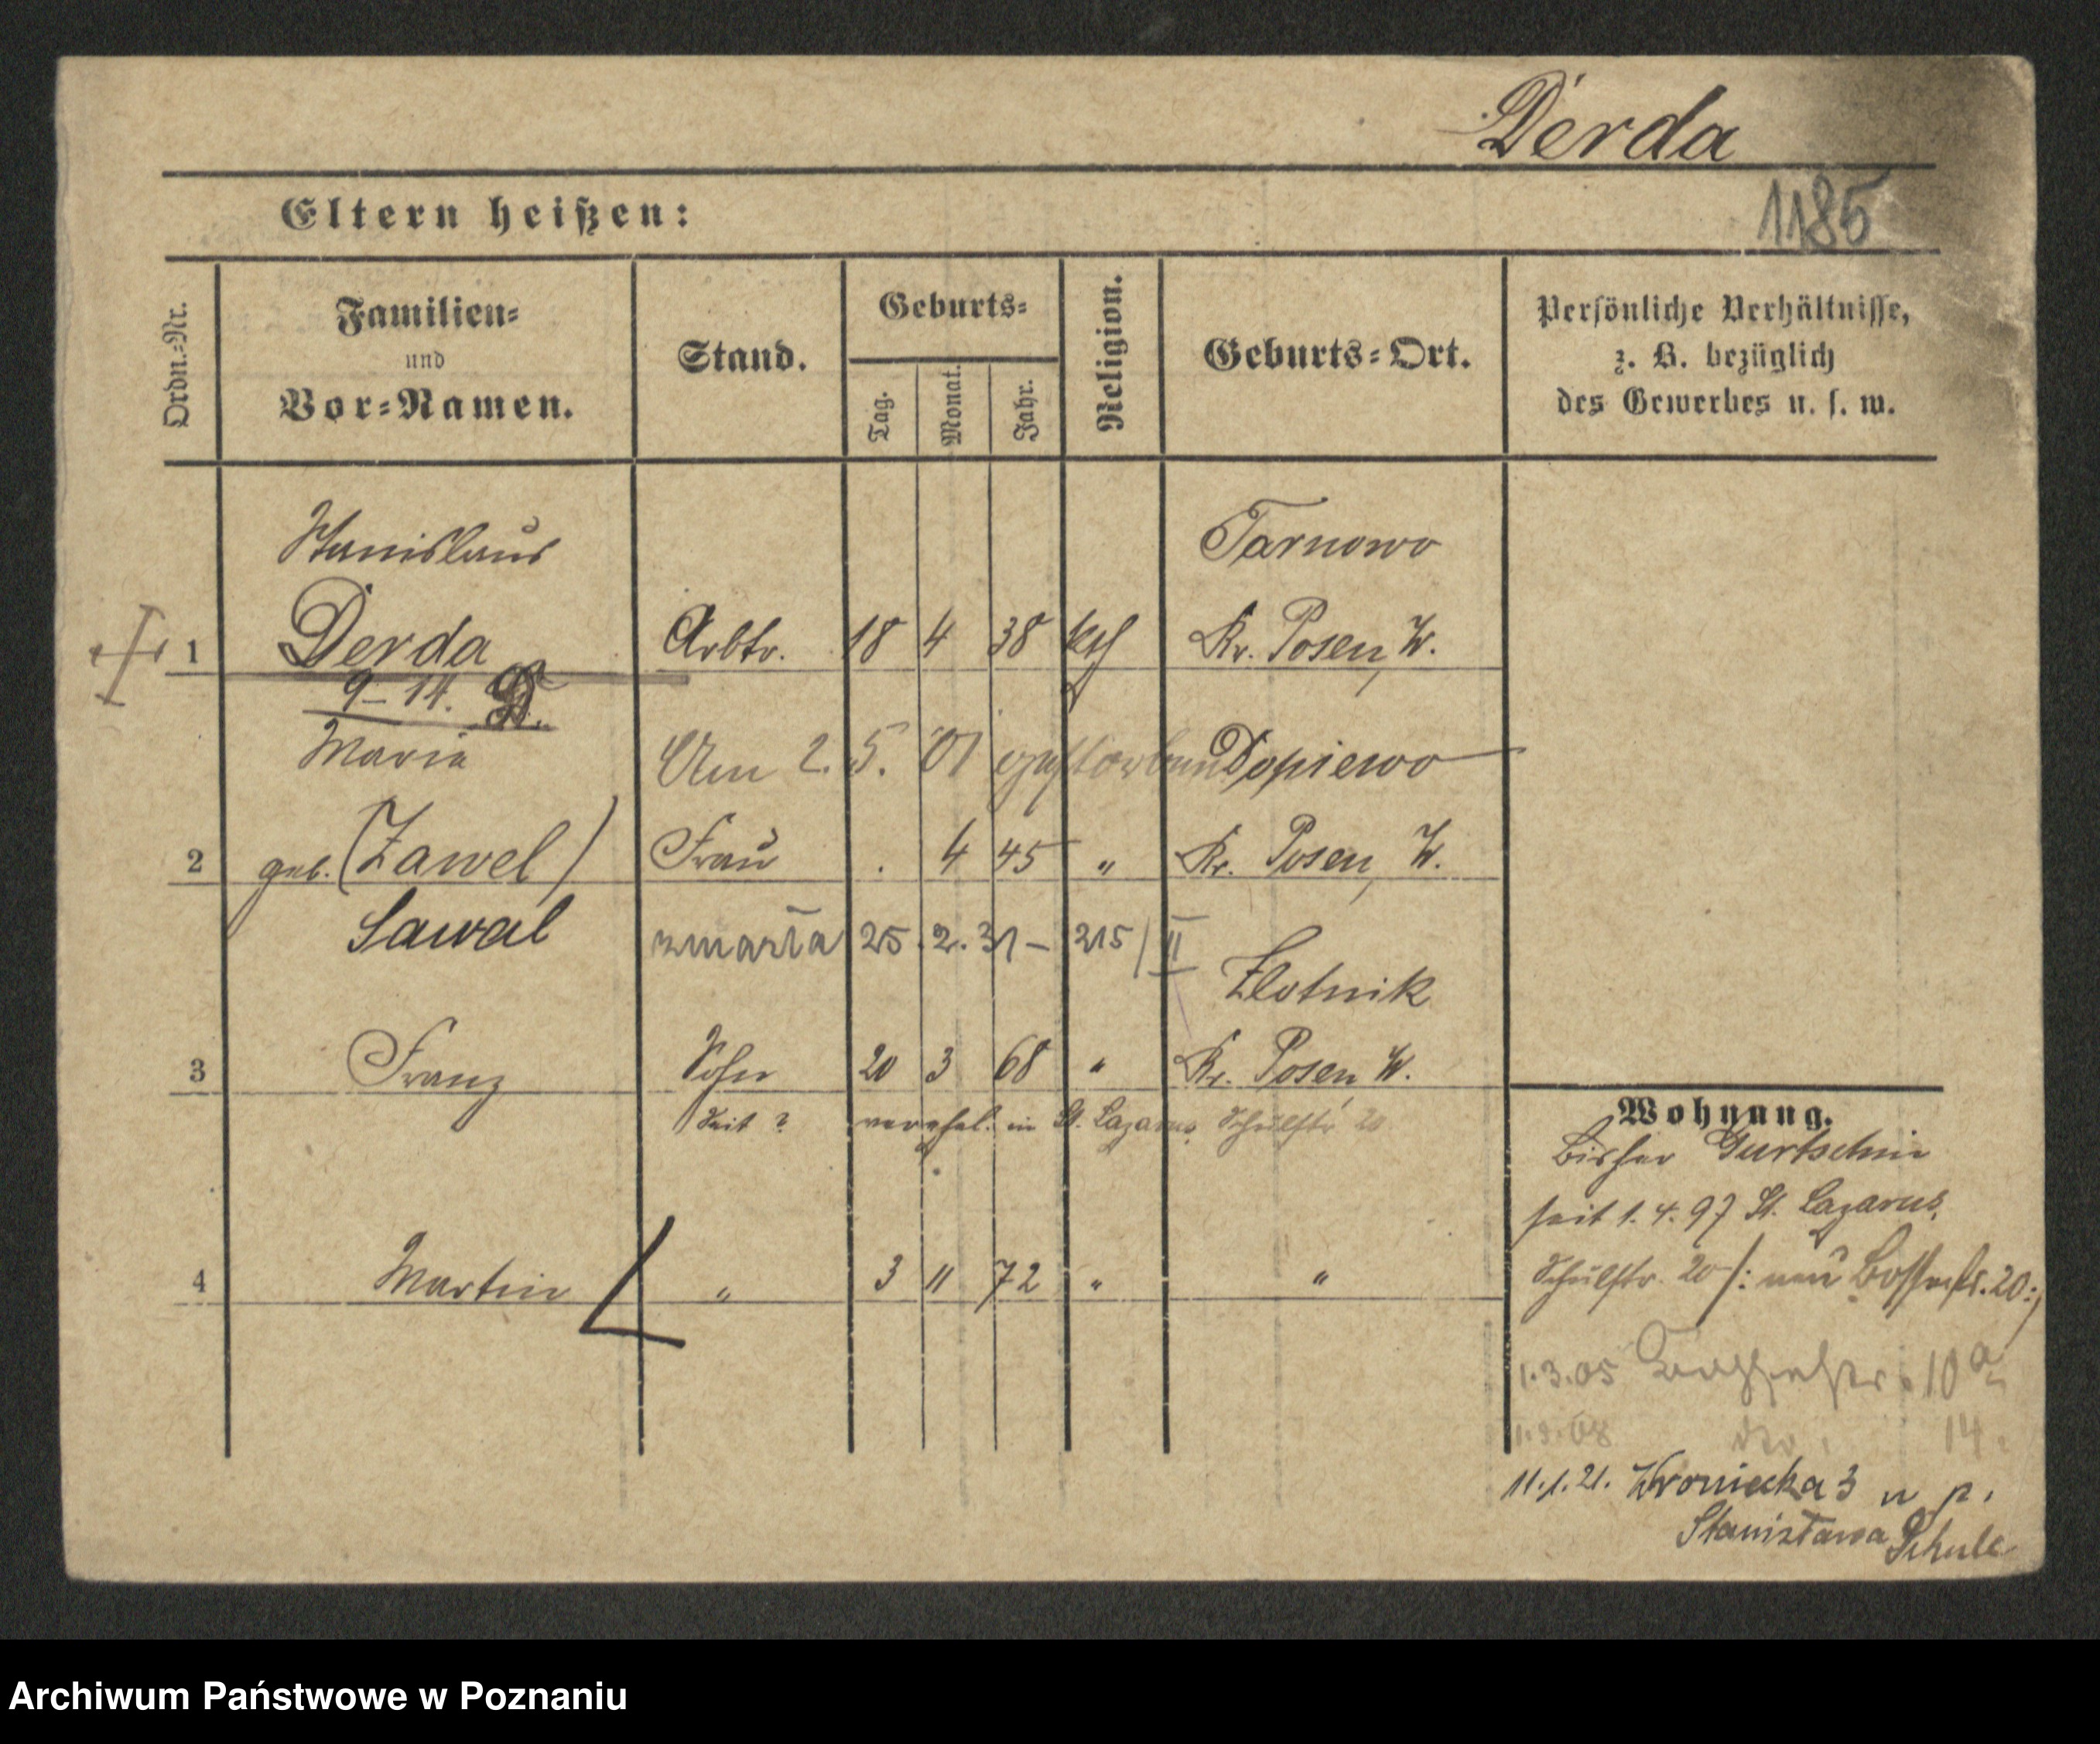 Derda
Eltern heißen:
1185
Ordn.-Nr.
Familien-
und
Vor-Namen.
Stand.
Geburts-
Tag.
Monat.
Jahr.
Religion.
Geburts-Ort.
Persönliche Verhältnisse,
z. B. bezüglich
des Gewerbes u. s. w.
Stanislaus
Tarnowo
1 Derda Arbtr. 18 4 38 kth Kr. Posen, W.
9-14.
Maria Am 2. 5. 01 gestorben Dopiewo
2 geb. (Zawel) Frau . 4 45 " Kr. Posen, W.
Sawal zmarła 25.2.31 - 215/II
Zlotnik
3 Franz Sohn 20 3 68 " Kr. Posen, W.
Seit ? verehel. in St. Lazarus, Schulstr. 20
4 Martin " 3 11 72 " "
Wohnung.
Bisher Gurtschin
seit 1.4.97 St. Lazarus,
Schulstr. 20 /: neu 20:/
1.3.05 10a
14.
11.1.21. Wroniecka 3 u p.
Stanisława Schule
Archiwum Państwowe w Poznaniu